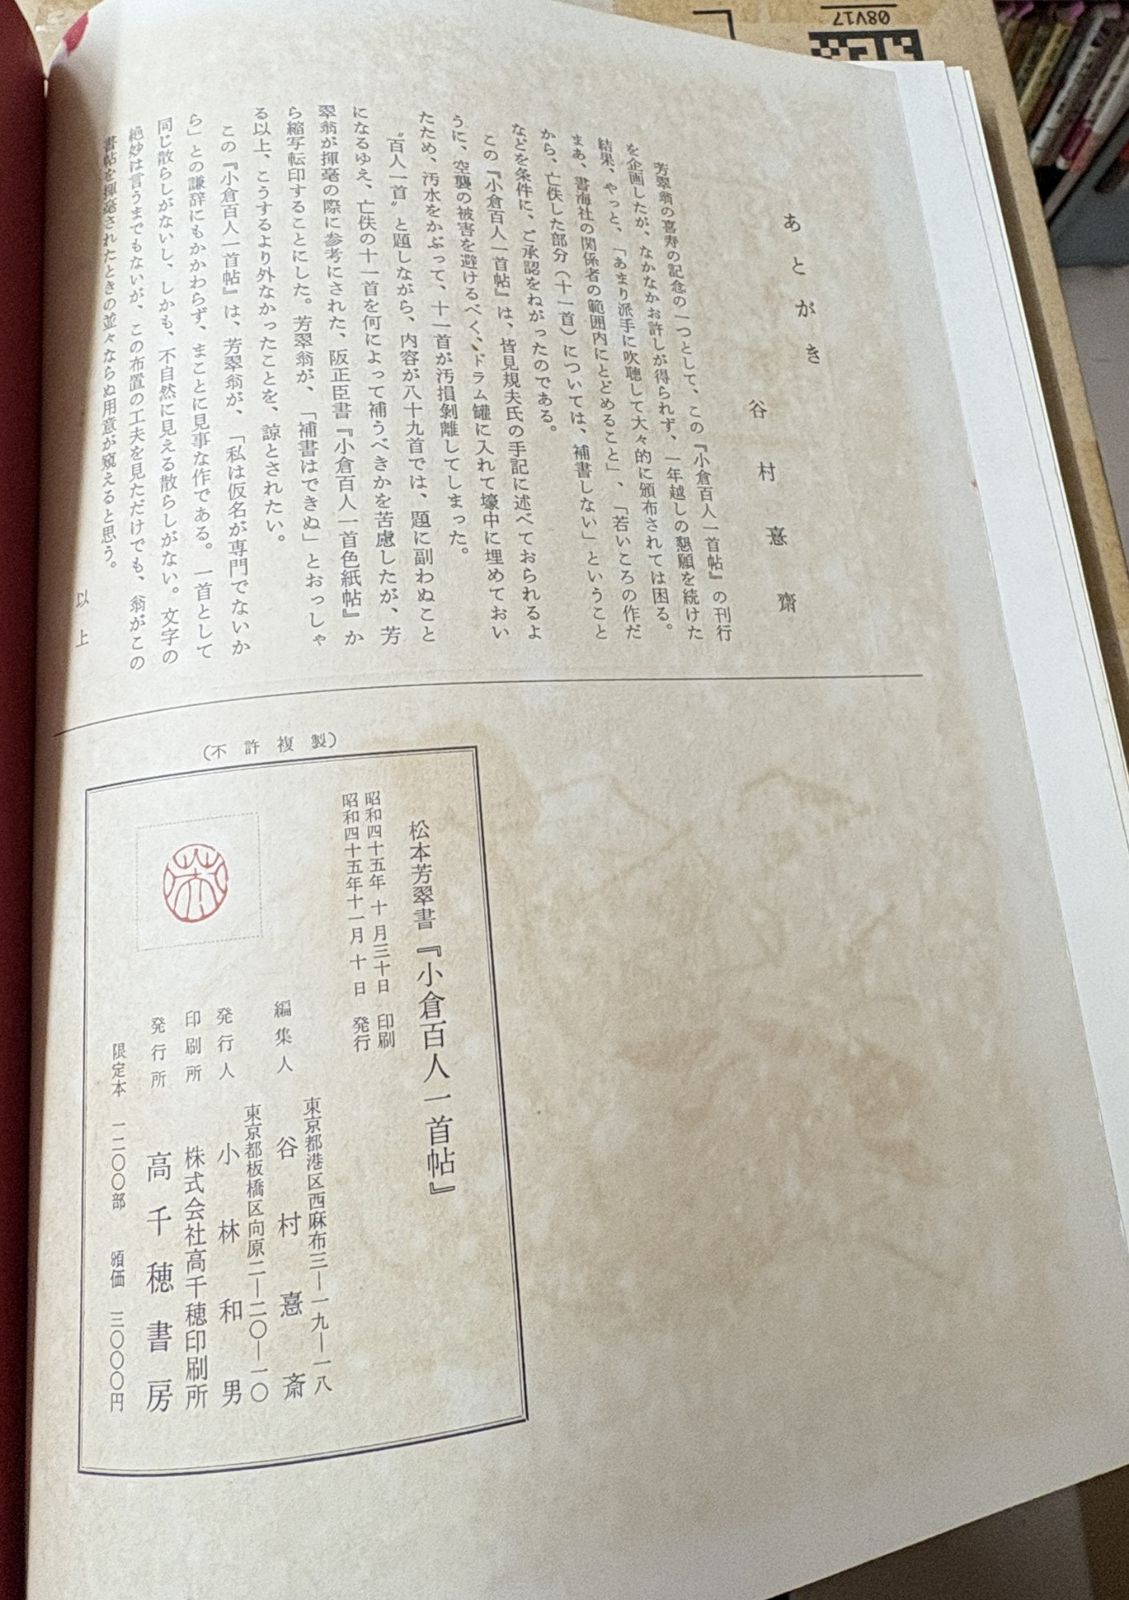 08V17
あとがき
谷村憙齋
芳翠翁の喜寿の記念の一つとして、この『小倉百人一首帖』の刊行
を企画したが、なかなかお許しが得られず、一年越しの懇願を続けた
結果、やっと、「あまり派手に吹聴して大々的に頒布されては困る。
まあ、書海社の関係者の範囲内にとどめること」、「若いころの作だ
から、亡佚した部分（十一首）については、補書しない」ということ
などを条件に、ご承認をねがったのである。
この『小倉百人一首帖』は、皆見規夫氏の手記に述べておられるよ
うに、空襲の被害を避けるべく、ドラム罐に入れて壕中に埋めておい
たため、汚水をかぶって、十一首が汚損剝離してしまった。
〝百人一首〟と題しながら、内容が八十九首では、題に副わぬこと
になるゆえ、亡佚の十一首を何によって補うべきかを苦慮したが、芳
翠翁が揮毫の際に参考にされた、阪正臣書『小倉百人一首色紙帖』か
ら縮写転印することにした。芳翠翁が、「補書はできぬ」とおっしゃ
る以上、こうするより外なかったことを、諒とされたい。
この『小倉百人一首帖』は、芳翠翁が、「私は仮名が専門でないか
ら」との謙辞にもかかわらず、まことに見事な作である。一首として
同じ散らしがないし、しかも、不自然に見える散らしがない。文字の
絶妙は言うまでもないが、この布置の工夫を見ただけでも、翁がこの
書帖を揮毫されたときの並々ならぬ用意が窺えると思う。
以上
（不許複製）
松本芳翠書『小倉百人一首帖』
昭和四十五年 十 月三十日 印刷
昭和四十五年十一月 十 日 発行
東京都港区西麻布三―一九―一八
編集人 谷村憙斎
東京都板橋区向原二―二〇―一〇
発行人 小林和男
印刷所 株式会社高千穂印刷所
発行所 高千穂書房
限定本 一二〇〇部 頒価 三〇〇〇円